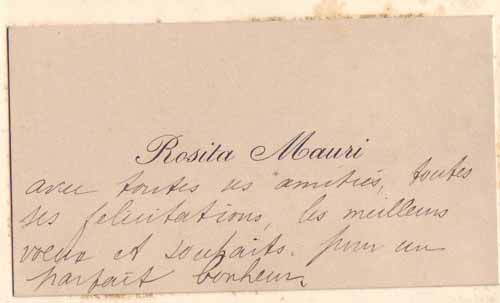 Rosita Mauri
avec toutes ses amitiés, toutes
ses felicitations, les meilleurs
voeux et souhaits. pour un
parfait bonheur.